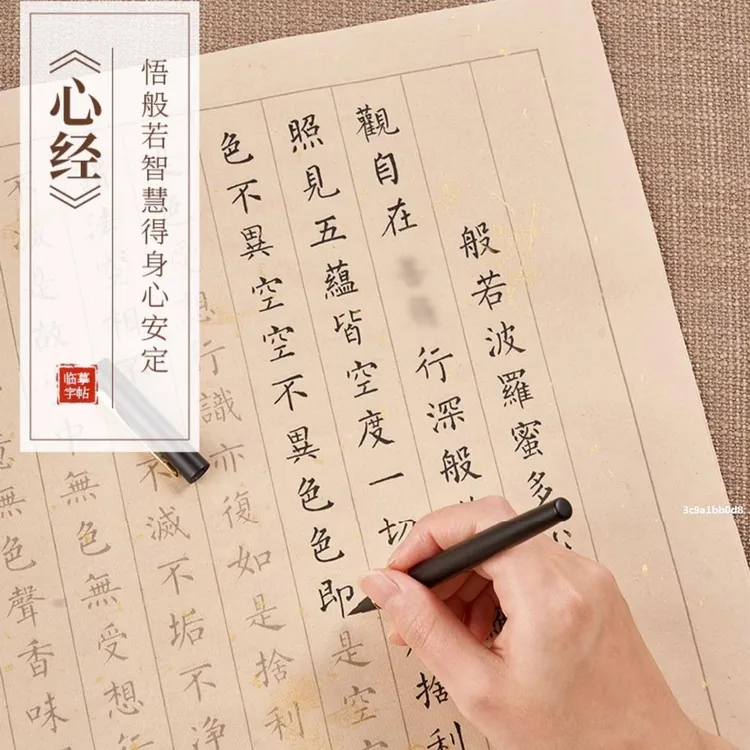 《心经》
悟般若智慧得身心安定
临摹
字帖
般若波羅蜜多
觀自在
行深般
照見五蘊皆空度一切
捨利
色不異空空不異色色即是空
想行識亦復如是捨利
法空相
不滅不垢不淨
是故
中無色無受想
意無色聲香味
3c9a1bb0d8